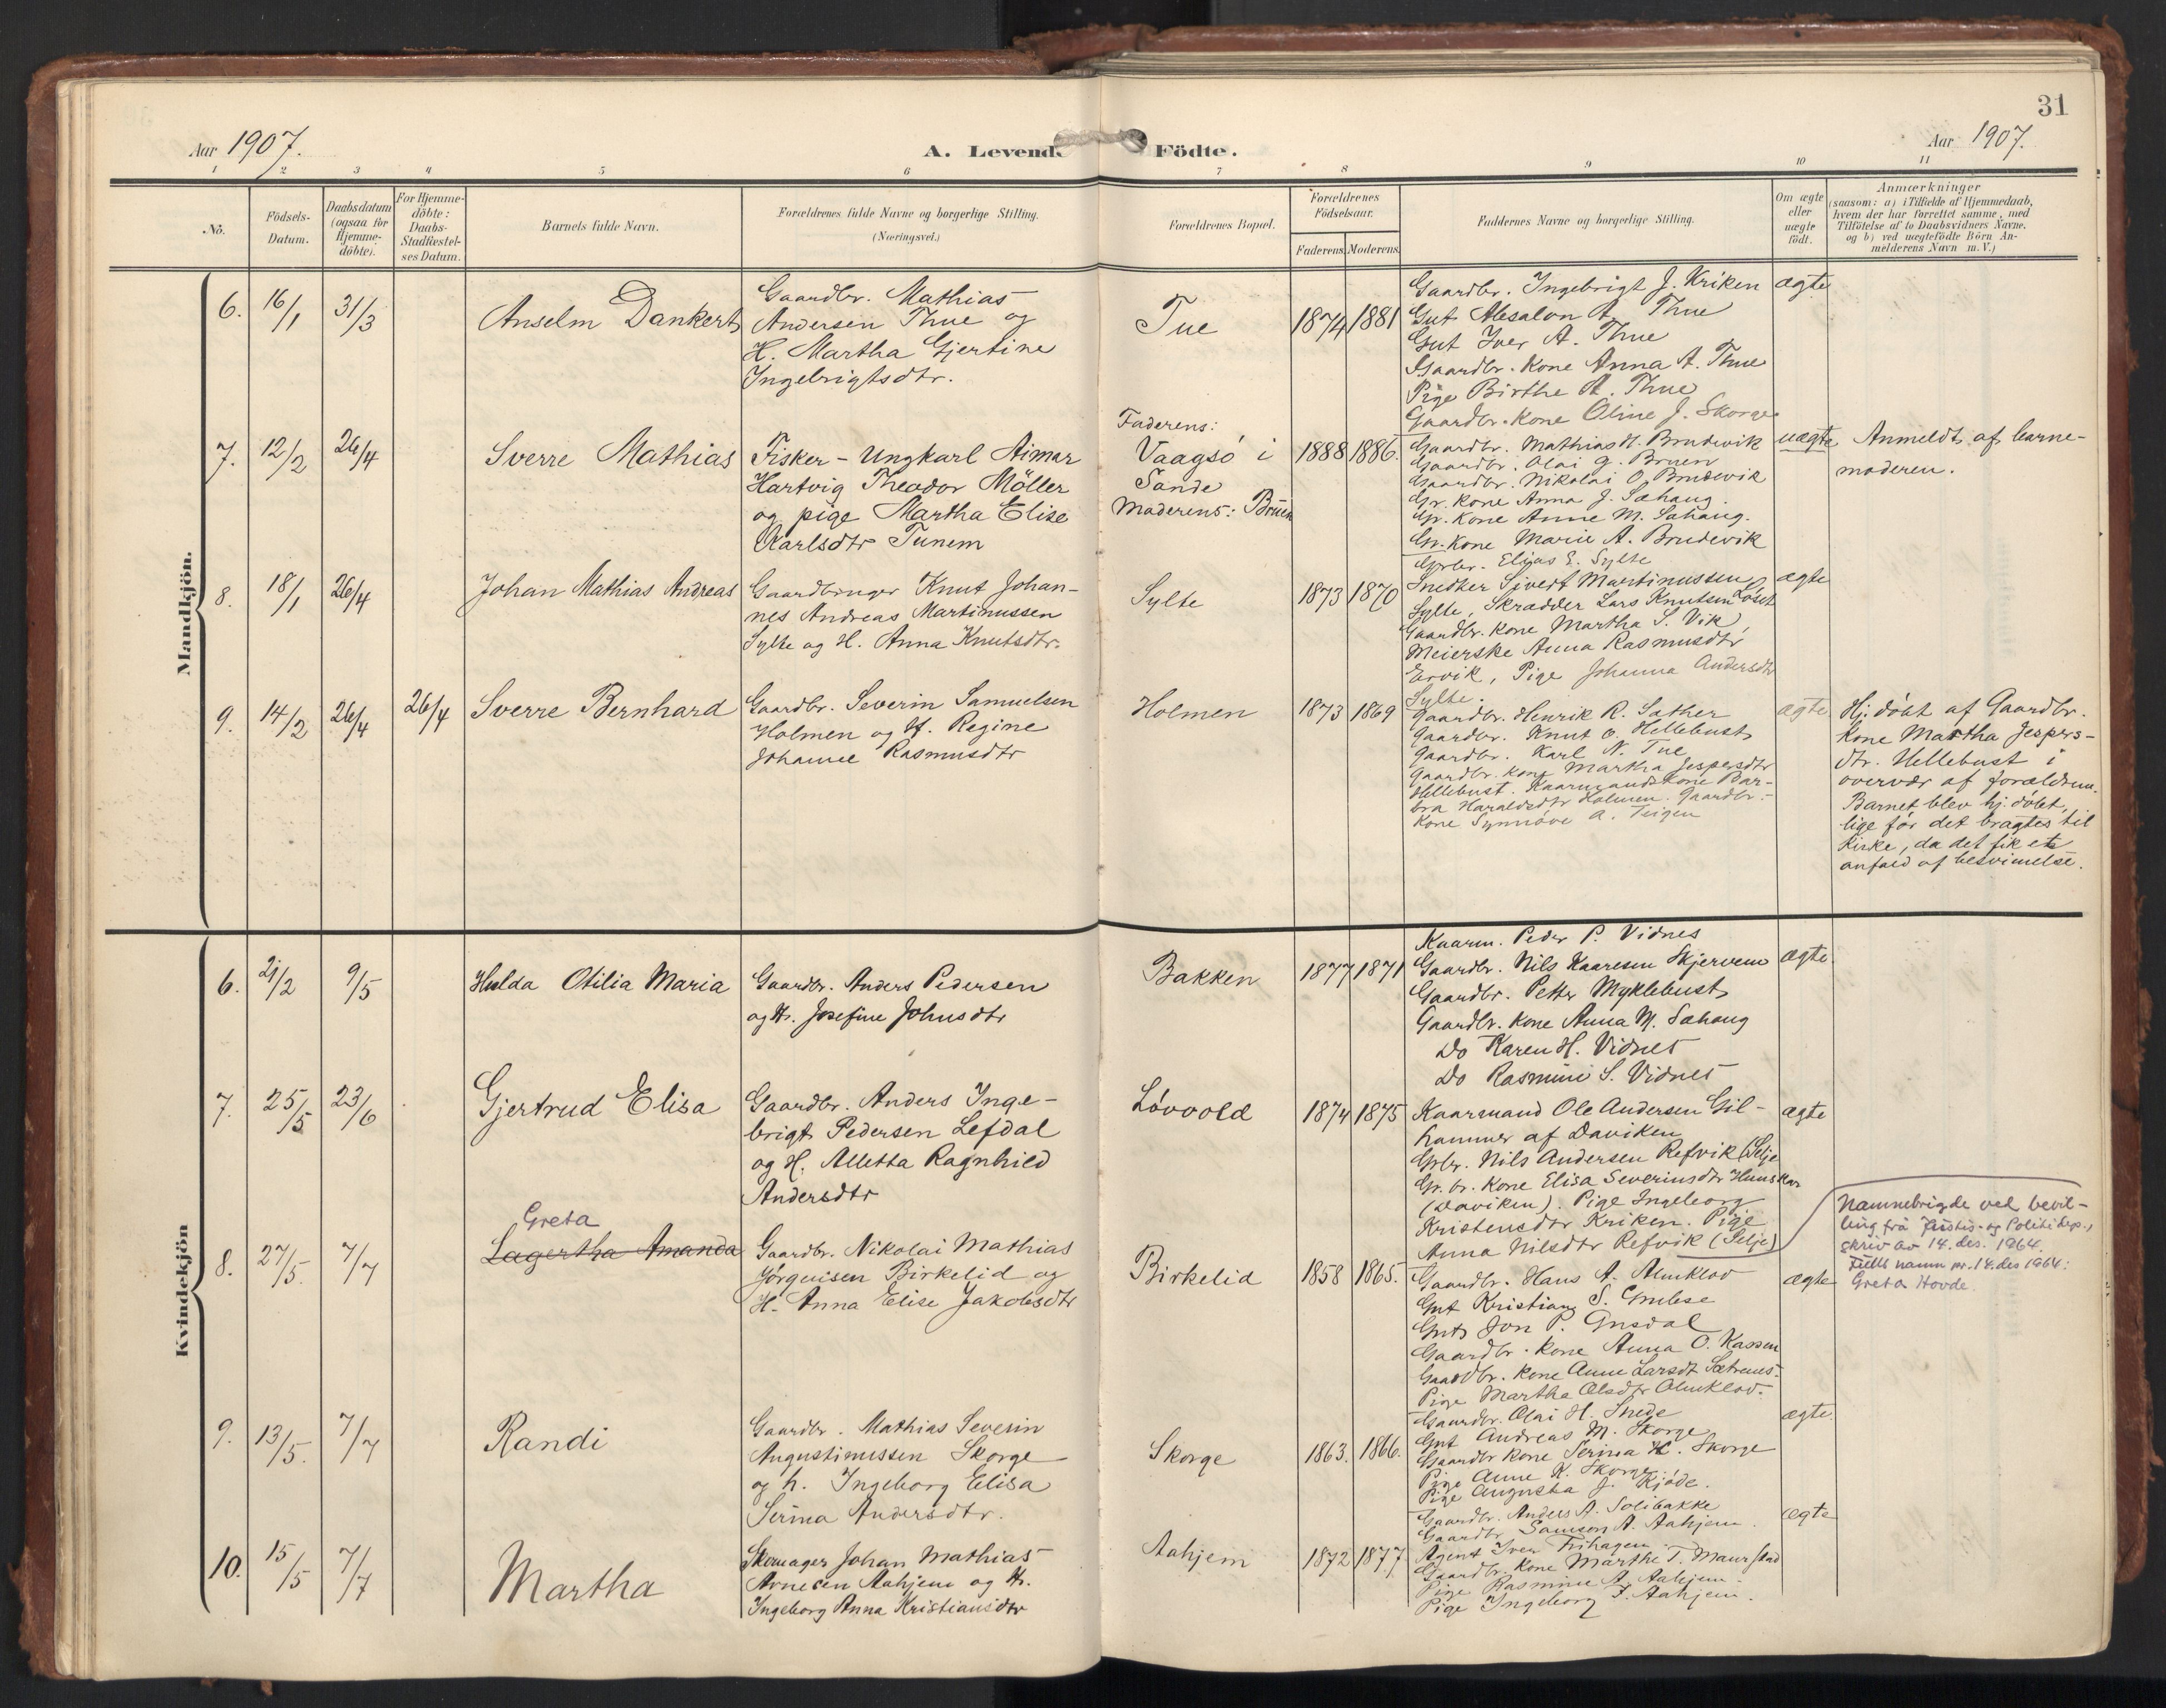 31
Aar 1907.
A. Levende Födte.
Aar 1907.
1 2 3 4 5 6 7 8 9 10 11
No.
Födsels-
Datum.
Daabsdatum
(ogsaa for
Hjemme-
döbte).
For Hjemme-
döbte:
Daabs-
Stadfæstel-
ses Datum.
Barnets fulde Navn.
Forældrenes fulde Navne og borgerlige Stilling.
(Næringsvei.)
Forældrenes Bopæl.
Forældrenes
Födselsaar.
Faderens. Moderens.
Faddernes Navne og borgerlige Stilling.
Om ægte
eller
uægte
födt.
Anmærkninger
(saasom: a) i Tilfælde af Hjemmedaab,
hvem der har forrettet samme, med
Tilföielse af to Daabsvidners Navne.
og b) ved uægtefödte Börn An-
melderens Navn m. V.)
Mandkjön.
6. 16/1 31/3
Anselm Dankert
Gaardbr. Mathias
Andersen Thue og
H. Martha Gjertine
Ingebrigtsdtr.
Tue
1874 1881
Gaardbr. Ingebrigt J. Kriken
Gut Absalon A. Thue
Gut Iver A. Thue
Gaardbr. Kone Anna A. Thue
Pige Birthe A. Thue
Gaardbr. Kone Oline J. Skorge
ægte
7. 12/2 26/4
Sverre Mathias
Fisker - Ungkarl Aimar
Hartvig Theodor Möller
og pige Martha Elise
Karlsdtr Tunem
Faderens:
Vaagsö i
Sande
Moderens: Bruen
1888 1886.
Gaardbr. Mathias H. Brudevik
Gaardbr. Olai G. Bruen
Gaardbr. Nikolai O. Brudevik
Gr. Kone Anna J. Sæhaug.
Gr. Kone Anne M. Sahaug.
Gr. Kone Marie A. Brudevik
uægte
Anmeldt af barne-
moderen.
8. 18/1 26/4
Johan Mathias Andreas
Gaardbruger Knut Johan-
nes Andreas Martinussen
Sylte og H. Anna Knutsdtr.
Sylte
1873 1870
Grbr. Elias E. Sylte
Snedker Sivert Martinussen
Sylte, Skrædder Lars Knutsen Löset
Gaardbr. Kone Martha S. Vik,
Meierske Anna Rasmusdtr
Ervik, Pige Johanna Andersdtr
Sylte.
ægte
9. 14/2 26/4 26/4
Sverre Bernhard
Gaardbr. Severin Samuelsen
Holmen og H. Regine
Johanne Rasmusdtr
Holmen
1873 1869
Gaardbr. Henrik R. Sather
Gaardbr. Knut O. Hellebust
Gaardbr. Karl N. Tue
Gaardbr. Kone Martha Jespersdtr
Hellebust. Kaarmands Kone Bar-
bra Haraldsdtr Holmen. Gaardbr.-
Kone Synnöve A. Teigen
ægte
Hj. döbt af Gaardbr.
Kone Martha Jespers-
dtr. Hellebust i
overvær af forældrene.
Barnet blev hj. döbt,
lige för det bragtes til
Kirke, da det fik et
anfald af besvimelse.
Kvindekjön
6. 21/2 9/5
Hulda Otilia Maria
Gaardbr. Anders Pedersen
og H. Josefine Johnsdtr
Bakken
1877 1871
Kaarm. Peder P. Vidnes
Gaardbr. Nils Kaaresen Skjervem
Gaardbr. Petter Myklebust
Gaardbr. Kone Anna M. Sæhaug
Do Karen H. Vidnes
Do Rasmine S. Vidnes
ægte.
7. 25/5 23/6
Gjertrud Elisa
Gaardbr. Anders Inge-
brigt Pedersen Lefdal
og H. Alletta Ragnhild
Andersdtr
Lövvold
1874 1875
Kaarmand Ole Andersen Gil-
hammer af Daviken
Grbr. Nils Andersen Refvik (Selje
Gr. br. Kone Elisa Severinsdtr Hunskar
(Daviken). Pige Ingeborg
Kristensdtr Kriken. Pige
Anna Nilsdtr Refvik (Selje)
ægte
8. 27/5. 7/7
Greta
Lagertha Amanda
Gaardbr. Nikolai Mathias
Jörginsen Birkelid og
H. Anna Elise Jakobsdtr
Birkelid
1858 1865.
Gaardbr. Hans A. Almklov
Gut Kristian S. Grubse
Gut Jon P. Gusdal
Gaardbr. Kone Anna O. Kassen
Gaardbr. Kone Anne Larsdt Sætrenes.
Pige Martha Olsdtr Almklov.
ægte
Namnebrigde ved bevil-
ling frå Justis- og Politidep.,
skriv av 14. des. 1964.
Fullt namn pr. 14. des 1964:
Greta Hovde.
9. 13/5. 7/7
Randi
Gaardbr. Mathias Severin
Augustinussen Skorge
og h. Ingeborg Elisa
Serina Andersdtr.
Skorge
1863. 1866.
Gaardbr. Olai H. Snede
Gut Andreas M. Skorge
Gaardbr Kone Serina K. Skorge
Pige Anne K. Skorge
Pige Augusta J. Kjöde.
ægte.
10. 15/5 7/7
Martha
Skomager Johan Mathias
Arnesen Aahjem og H.
Ingeborg Anna Kristiansdtr
Aahjem
1872 1877
Gaardbr. Anders A. Solibakke
Gaardbr. Samson A. Aahjem.
Agent Iver Frihagen.
Gaardbr. Kone Marthe T. Maurstad
Pige Rasmine A. Aahjem.
Pige Ingeborg J. Aahjem.
ægte